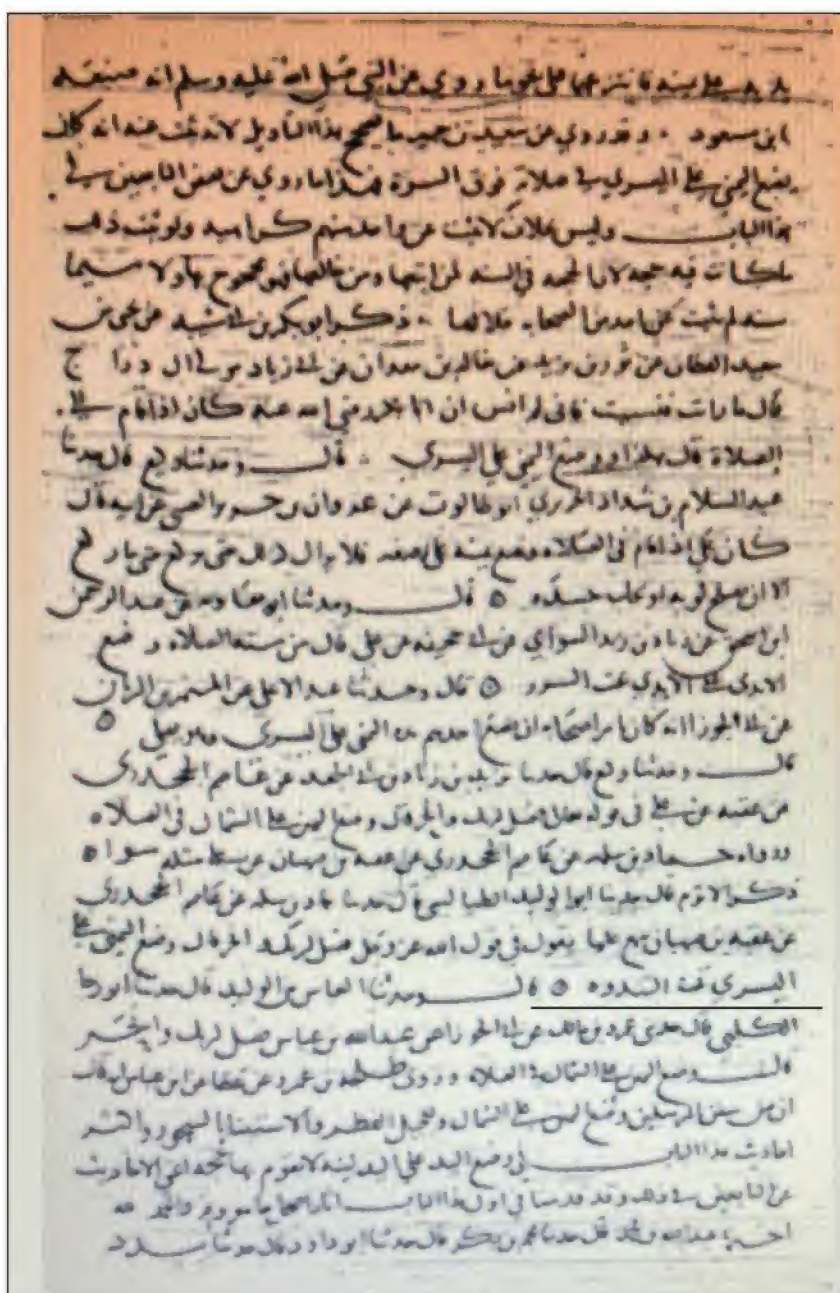 على يمينه فانتزعها على نحو ما روي عن النبي صلى الله عليه وسلم انه صنعه
ابن مسعود . وقد روي عن سعيد بن جبير ما يصحح هذا التاويل لانه ثبت عنه انه كان
يضع اليمنى على اليسرى في صلاته فوق السرة فهذا ما روي عن بعض التابعين في
هذا الباب وليس بخلاف لانه لا ثبت عن واحد منهم كراهيه ولو ثبت ذلك
ما كانت فيه حجه لان الحجه في السنه لمن اتبعها ومن خالفها فهو محجوج بها ولا سيما
سنه لم يثبت عن احد من الصحابه خلافها . ذكر ابو بكر بن ابي شيبه عن يحيى بن
سعيد القطان عن ثور بن يزيد عن خالد بن معدان عن ابي زياد مولى ال دراج
قال ما رايت فنسيت فاني لم انس ان ابا بكر رضي الله عنه كان اذا قام في
الصلاة قال هكذا ووضع اليمنى على اليسرى . قال وحدثنا وكيع قال حدثنا
عبد السلام بن شداد الجريري ابو طالوت عن غزوان بن جرير الضبي عن ابيه قال
كان علي اذا قام في الصلاه وضع يمينه على رسغه فلا يزال كذلك حتى يركع متى ما ركع
الا ان يصلح ثوبه او يحك جسده ۞ قال وحدثنا ابو معاويه عن عبد الرحمن
ابن اسحق عن زياد بن زيد السوائي عن ابي جحيفه عن علي قال من سنه الصلاه وضع
الايدي على الايدي تحت السرر ۞ قال وحدثنا عبد الاعلى عن المستمر بن الريان
عن ابي الجوزا انه كان يامر اصحابه ان يضع احدهم يده اليمنى على اليسرى وهو يصلي ۞
قال وحدثنا وكيع قال حدثنا يزيد بن زياد بن ابي الجعد عن عاصم الجحدري
عن عقبه عن علي في قوله تعالى فصل لربك وانحر قال وضع اليمين على الشمال في الصلاه
ورواه حماد بن سلمه عن عاصم الجحدري عن عقبه بن صهبان عن علي مثله سوا ۞
ذكر الاثرم قال حدثنا ابو الوليد الطيالسي قال حدثنا حماد بن سلمه عن عاصم الجحدري
عن عقبه بن صهبان سمع عليا يقول في قول الله عز وجل فصل لربك وانحر قال وضع اليمنى على
اليسرى تحت السدوه ۞ قال وحدثنا العباس بن الوليد قال حدثنا ابو رجا
الكليبي قال حدثني عمرو بن مالك عن ابي الجوزا عن عبد الله بن عباس فصل لربك وانحر
قال وضع اليمين على الشمال في الصلاه وروى طلحه بن عمرو عن عطا عن ابن عباس انه قال
ان من سنن المرسلين وضع اليمين على الشمال وتعجيل الفطر والاستينا بالسحور واكثر
احاديث هذا الباب في وضع اليد على اليد لينه لا تقوم بها حجه اعني الاحاديث
عن التابعين في ذلك وقد قدمنا في اول هذا الباب اثارا صحاحا مرفوعه والحمد لله
اخبرنا عبد الله بن محمد قال حدثنا محمد بن بكر قال حدثنا ابو داود قال حدثنا مسدد